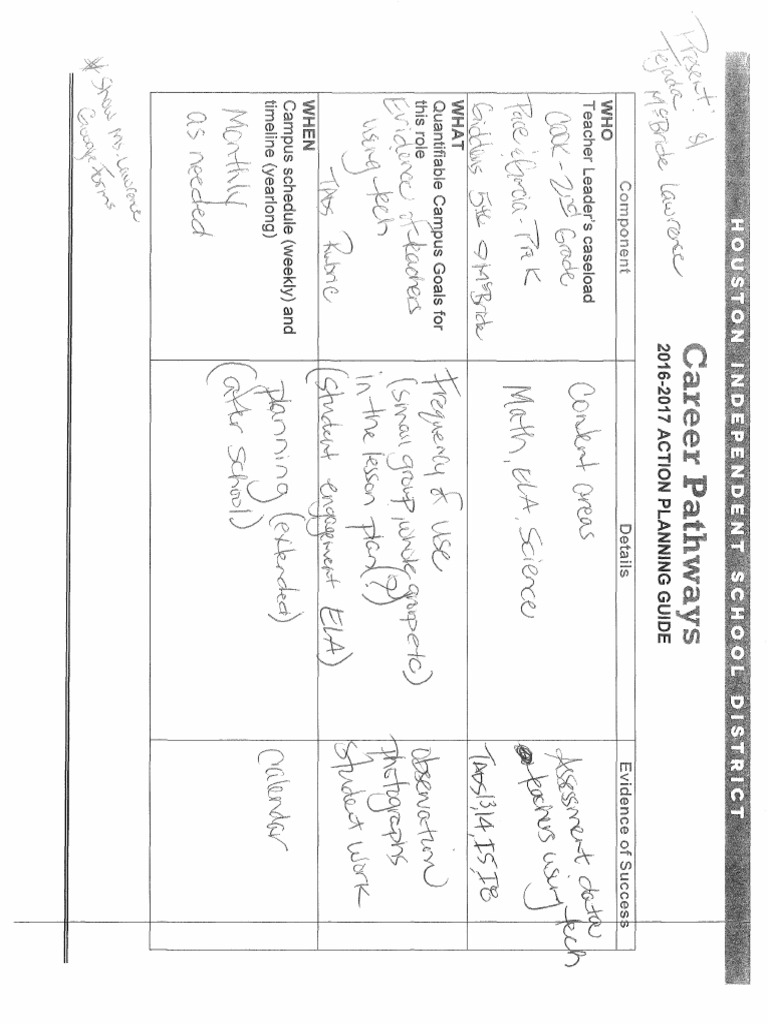 HOUSTON INDEPENDENT SCHOOL DISTRICT
Present:
Tejada
McBride Lawrence
Career Pathways
2016-2017 ACTION PLANNING GUIDE
Component
Details
Evidence of Success
WHO
Teacher Leader's caseload
Cook - 2nd Grade
Garcia - PreK
Giddins 5th McBride
Content areas
Math, ELA, Science
Assessment data
teachers using tech
TADS I3, I4, I5, I8
WHAT
Quantifiable Campus Goals for
this role
Evidence of teachers
using tech
TADS Rubric
Frequency of use
(small group, whole group etc)
in the lesson plan(?)
(student engagement ELA)
Observation
Photographs
Student work
WHEN
Campus schedule (weekly) and
timeline (yearlong)
Monthly
as needed
planning (extended)
(after school)
Calendar
* Show Ms. Lawrence
Google Forms